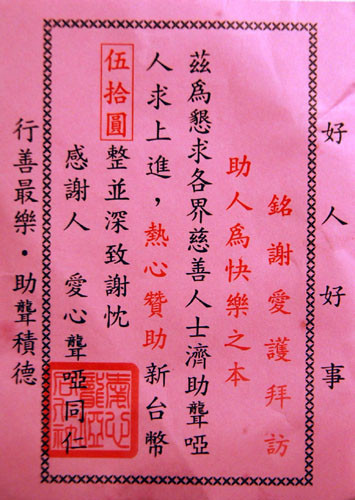 好人好事
銘謝愛護拜訪
助人為快樂之本
茲為懇求各界慈善人士濟助聾啞
人求上進，熱心贊助新台幣
伍拾圓整並深致謝忱
感謝人 愛心聾啞同仁
行善最樂・助聾積德